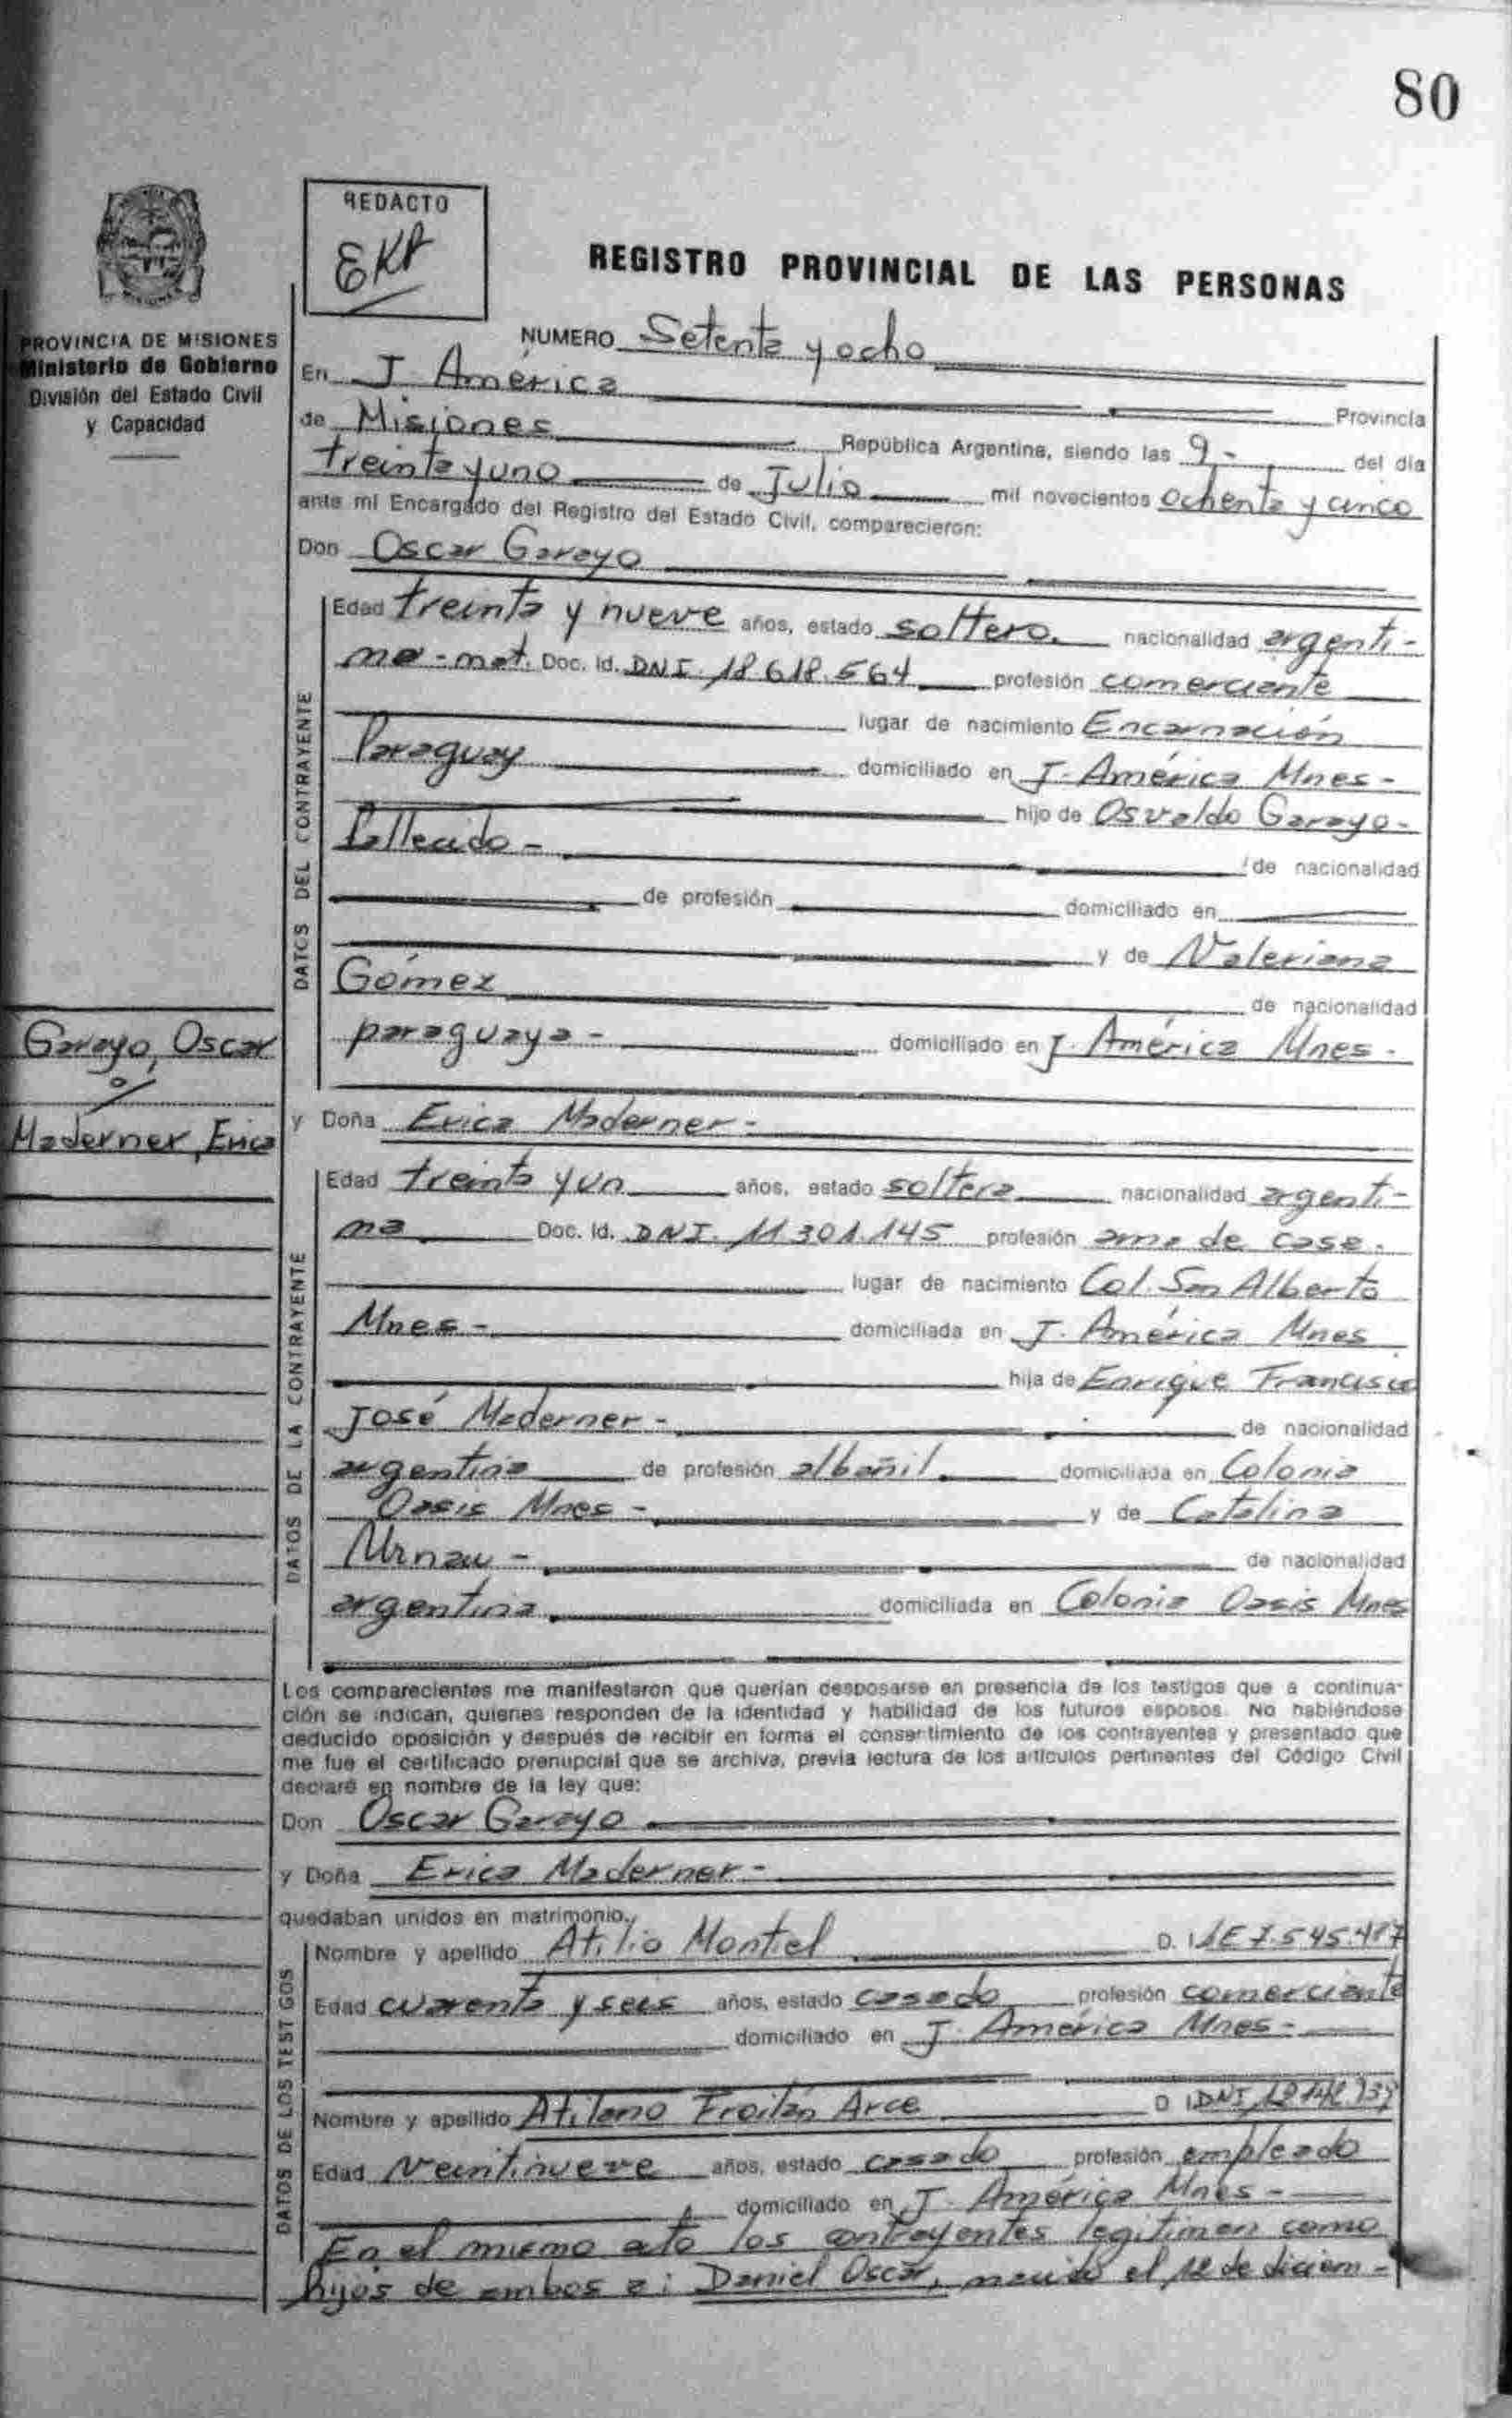 80
REDACTO
EKA
REGISTRO PROVINCIAL DE LAS PERSONAS
PROVINCIA DE MISIONES
Ministerio de Gobierno
División del Estado Civil
y Capacidad
NUMERO Setenta y ocho
En J América Provincia
de Misiones República Argentina, siendo las 9 - del día
treinta y uno de Julio mil novecientos ochenta y cinco
ante mí Encargado del Registro del Estado Civil, comparecieron:
Don Oscar Garayo
DATOS DEL CONTRAYENTE
Edad treinta y nueve años, estado soltero. nacionalidad argenti-
no - nat. Doc. Id. DNI. 18.618.564 profesión comerciante
lugar de nacimiento Encarnación
Paraguay domiciliado en J. América Mnes -
hijo de Osvaldo Garayo -
fallecido - de nacionalidad
de profesión domiciliado en
y de Valeriana
Gómez de nacionalidad
paraguaya - domiciliado en J. América Mnes -
Garayo, Oscar
c/
Maderner, Erica
y Doña Erica Maderner -
DATOS DE LA CONTRAYENTE
Edad treinta y un años, estado soltera nacionalidad argenti-
na Doc. Id. DNI. 11.301.145 profesión ama de casa.
lugar de nacimiento Col. San Alberto
Mnes - domiciliada en J. América Mnes
hija de Enrique Francisco
José Maderner - de nacionalidad
argentina de profesión albañil domiciliada en Colonia
Oasis Mnes - y de Catalina
de nacionalidad
argentina domiciliada en Colonia Oasis Mnes
Los comparecientes me manifestaron que querían desposarse en presencia de los testigos que a continua-
ción se indican, quienes responden de la identidad y habilidad de los futuros esposos. No habiéndose
deducido oposición y después de recibir en forma el consentimiento de los contrayentes y presentado que
me fue el certificado prenupcial que se archiva, previa lectura de los artículos pertinentes del Código Civil
declaré en nombre de la ley que:
Don Oscar Garayo
y Doña Erica Maderner -
quedaban unidos en matrimonio.
DATOS DE LOS TESTIGOS
Nombre y apellido Atilio Montiel D. I. LE 7.545.417
Edad cuarenta y seis años, estado casado profesión comerciante
domiciliado en J. América Mnes -
Nombre y apellido Atilano Froilán Arce D. I. DNI
Edad veintinueve años, estado casado profesión empleado
domiciliado en J. América Mnes -
En el mismo acto los contrayentes legitiman como
hijos de ambos a: Daniel Oscar, nacido el 12 de diciem -